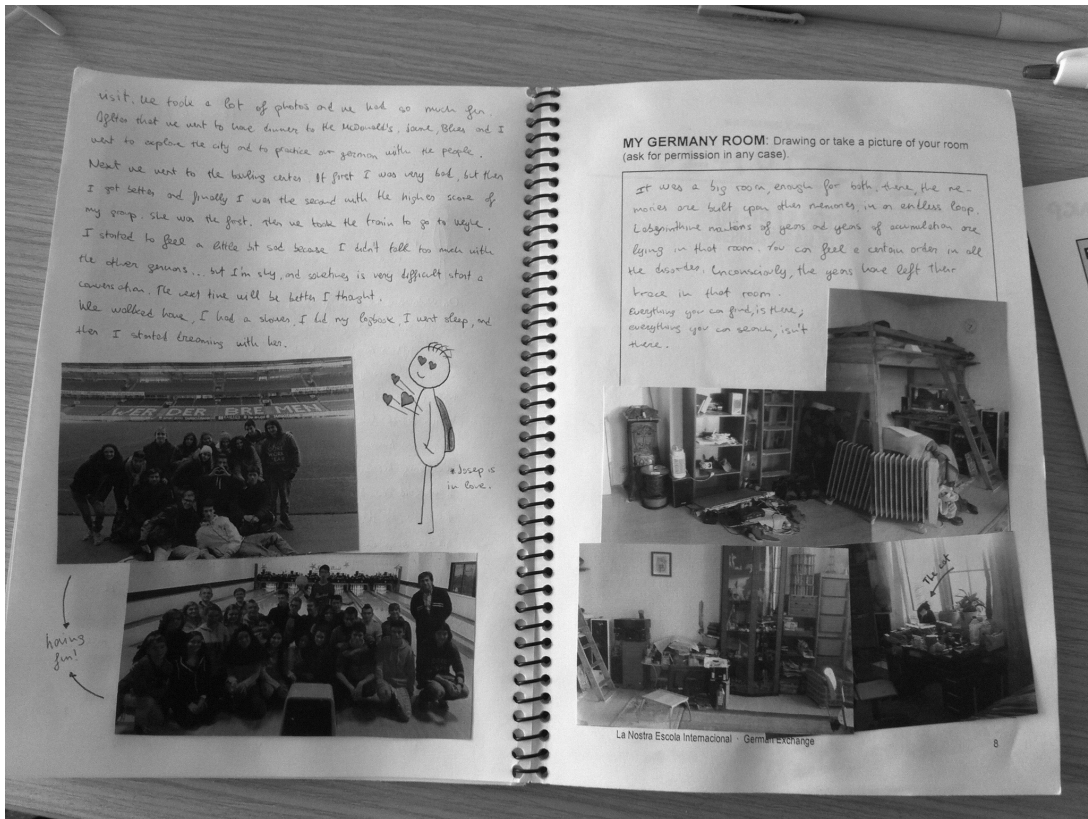 visit. We took a lot of photos and we had so much fun.
After that we went to have dinner to the McDonald's. Jaume, Blues and I
went to explore the city and to practice our german with the people.
Next we went to the bowling center. At first I was very bad, but then
I got better and finally I was the second with the highest score of
my group. She was the first. Then we took the train to go to Weyhe.
I started to feel a little bit sad because I didn't talk too much with
the other germans... but I'm shy, and sometimes is very difficult start a
conversation. The next time will be better I thought.
We walked home, I had a shower, I did my logbook, I went sleep, and
then I started dreaming with her.
WERDER BREMEN
*Josep is
in love.
having
fun!
MY GERMANY ROOM: Drawing or take a picture of your room
(ask for permission in any case).
It was a big room, enough for both. There, the me-
mories are built upon other memories, in an endless loop.
Labyrinthine mountains of years and years of acumulation are
lying in that room. You can feel a certain order in all
the disorder. Unconsciously, the years have left their
trace in that room.
Everything you can find, is there;
everything you can search, isn't
there.
The cat
La Nostra Escola Internacional · German Exchange
8